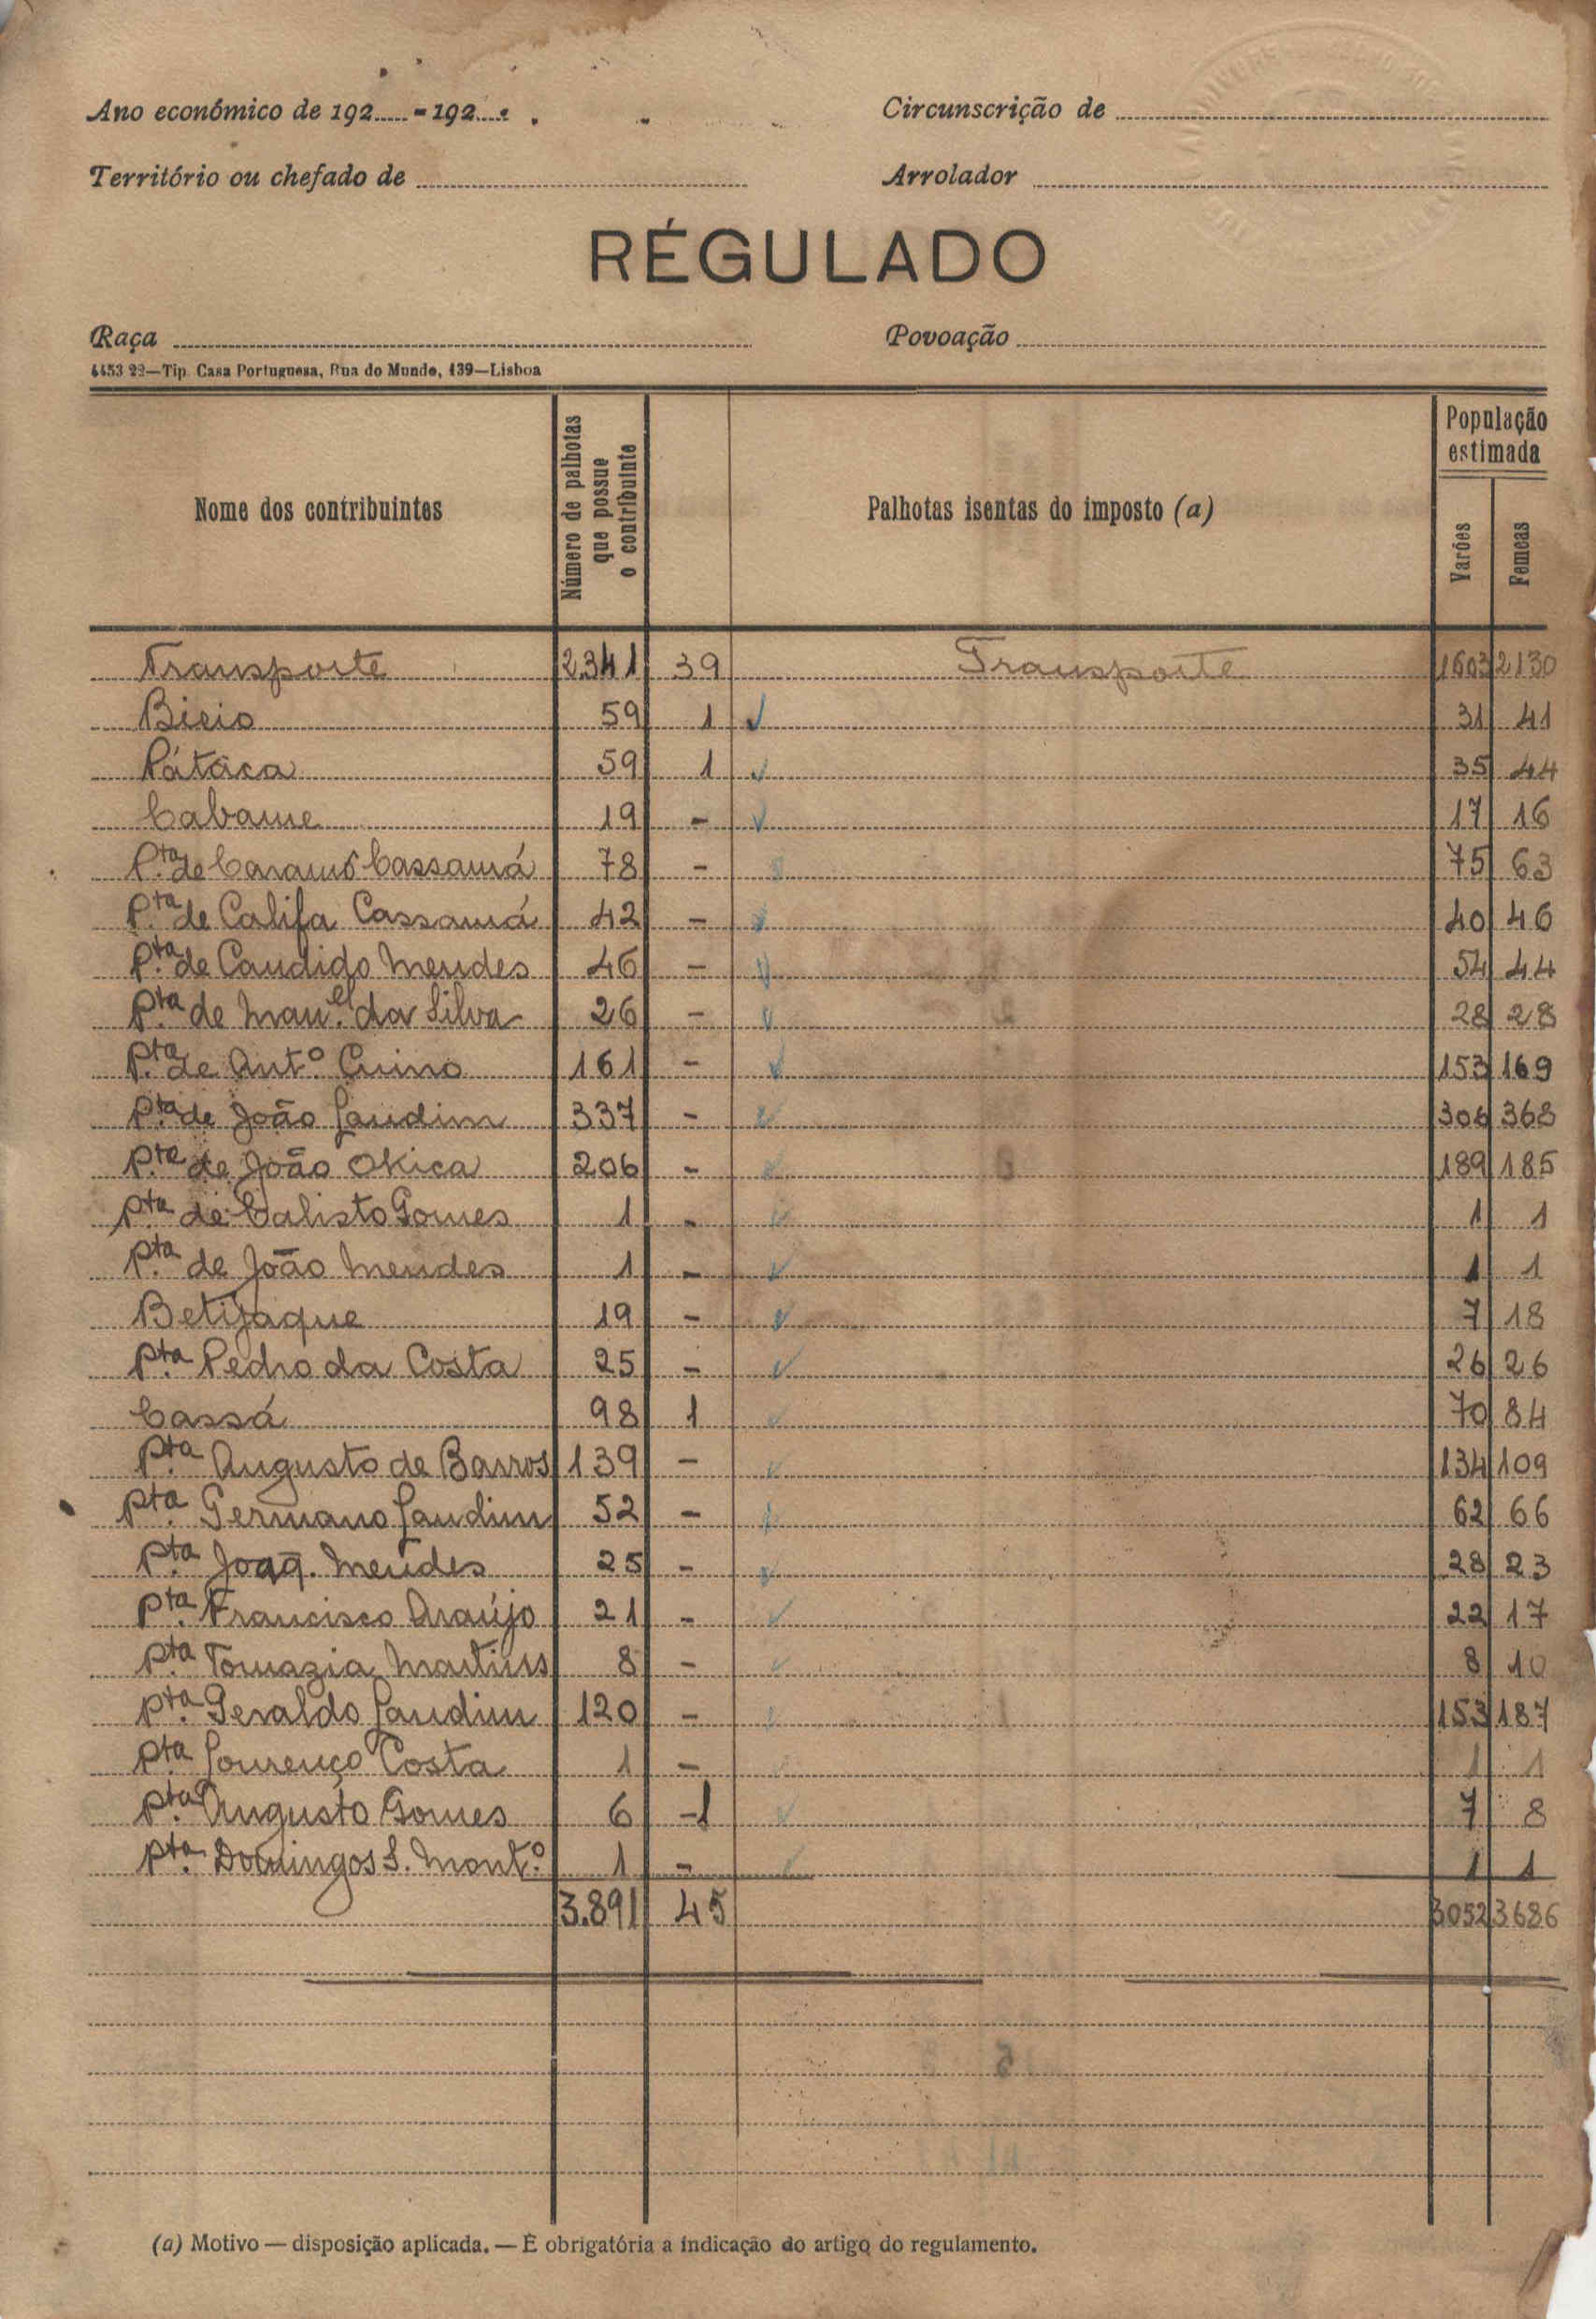 Ano económico de 192..... - 192.....
Circunscrição de
Território ou chefado de
Arrolador
RÉGULADO
Raça
Povoação
4453 22—Tip. Casa Portuguesa, Rua do Mundo, 139—Lisboa
Nome dos contribuintes | Número de palhotas que possue o contribuinte | Palhotas isentas do imposto (a) | População estimada Varões Femeas
Transporte 2.341 39 Transporte 1603 2130
Bicio 59 1 31 41
Pátáca 59 1 35 44
Cabame 19 - 17 16
P.ta de Caramó Cassamá 78 - 75 63
P.ta de Califa Cassamá 42 - 40 46
P.ta de Candido Mendes 46 - 54 44
P.ta de Man.el da Silva 26 - 28 28
P.ta de Ant.º Cuino 161 - 153 169
P.ta de João Landim 337 - 306 368
P.ta de João Okica 206 - 189 185
P.ta de Calisto Gomes 1 - 1 1
P.ta de João Mendes 1 - 1 1
Betijaque 19 - 7 18
P.ta Pedro da Costa 25 - 26 26
Cassá 98 1 70 84
P.ta Augusto de Barros 139 - 134 109
P.ta Germano Landim 52 - 62 66
P.ta Joaq. Mendes 25 - 28 23
P.ta Francisco Araújo 21 - 22 17
P.ta Tomazia Martins 8 - 8 10
P.ta Geraldo Landim 120 - 153 187
P.ta Lourenço Costa 1 - 1 1
P.ta Augusto Gomes 6 -1 7 8
P.ta Domingos S. Mont.º 1 - 1 1
3.891 45 3052 3686
(a) Motivo — disposição aplicada. — É obrigatória a indicação do artigo do regulamento.